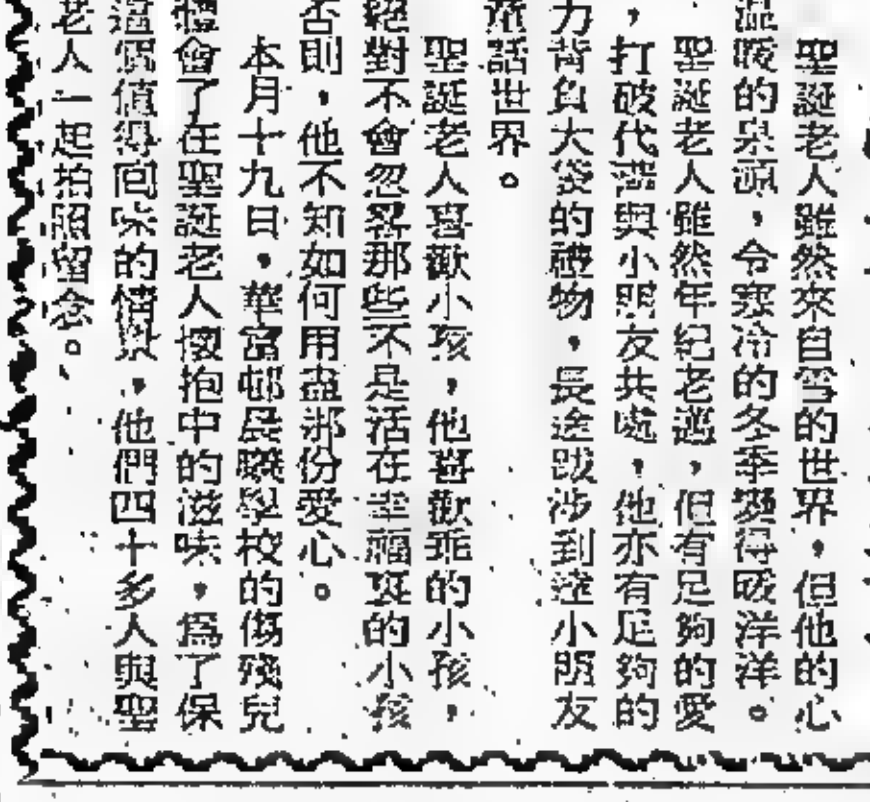 聖誕老人雖然來自雪的世界，但他的心
溫暖的泉源，令寒冷的冬季變得暖洋洋。
聖誕老人雖然年紀老邁，但有足夠的愛
，打破代溝與小朋友共處，他亦有足夠的
力背負大袋的禮物，長途跋涉到達小朋友
童話世界。
聖誕老人喜歡小孩，他喜歡乖的小孩，
絕對不會忽畧那些不是活在幸福裏的小孩
否則，他不知如何用盡那份愛心。
本月十九日，華富邨晨曦學校的傷殘兒
體會了在聖誕老人懷抱中的滋味，爲了保
這個值得回味的情景，他們四十多人與聖
老人一起拍照留念。